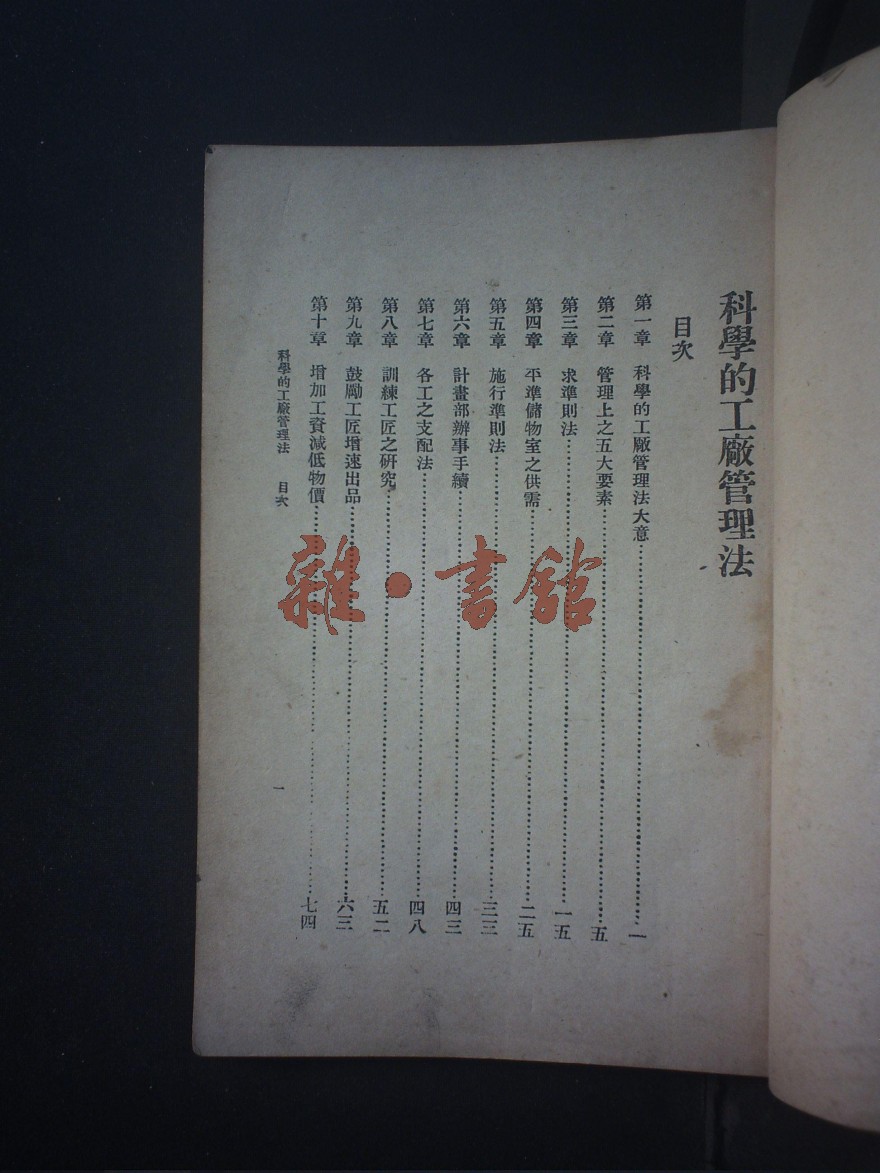 科學的工廠管理法
目次
第一章　科學的工廠管理法大意…………一
第二章　管理上之五大要素…………五
第三章　求準則法…………一五
第四章　平準儲物室之供需…………二五
第五章　施行準則法…………三三
第六章　計畫部辦事手續…………四三
第七章　各工之支配法…………四八
第八章　訓練工匠之研究…………五二
第九章　鼓勵工匠增速出品…………六三
第十章　增加工資減低物價…………七四
科學的工廠管理法　目次　一
雜·書館